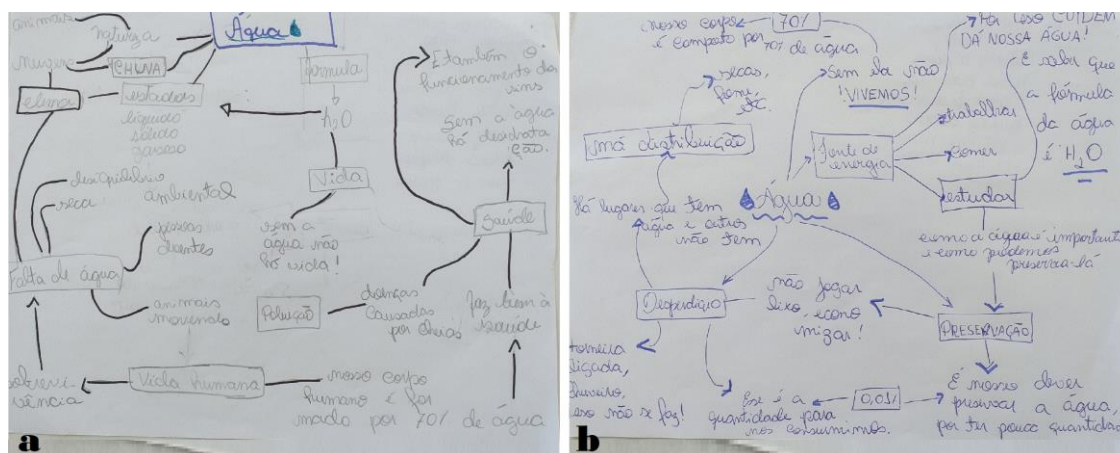 animais
natureza
Água
CHUVA
clima
estados
líquido
sólido
gasoso
fórmula
H₂O
Vida
sem a
água não
há vida!
E também o
funcionamento dos
rins
Sem a água
há desidrata
ção.
Saúde
faz bem à
saúde
desequilíbrio
ambiental
seca
pessoas
doentes
Falta de água
animais
morrendo
Poluição
doenças
causadas
por cheias
sobrevi
vência
Vida humana
nosso corpo
humano é for
mado por 70% de água
a
nosso corpo
70%
é composto por 70% de água
secas,
fome,
Sem ela não
!VIVEMOS!
Por isso CUIDEM
DA NOSSA ÁGUA!
É saber que
a fórmula
da água
é H₂O
má distribuição
Fonte de
energia
trabalhar
comer
estudar
Água
Há lugares que tem
água e outros
não tem
como a água é importante
e como podemos
preservá-lá
Desperdício
não jogar
lixo, econo
mizar!
PRESERVAÇÃO
torneira
ligada,
chuveiro,
isso não se faz!
Esse é a
quantidade para
nós consumimos.
0,01%
É nosso dever
preservar a água
por ter pouca quantidade
b